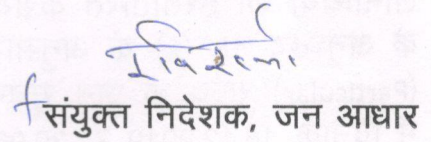 संयुक्त निदेशक, जन आधार